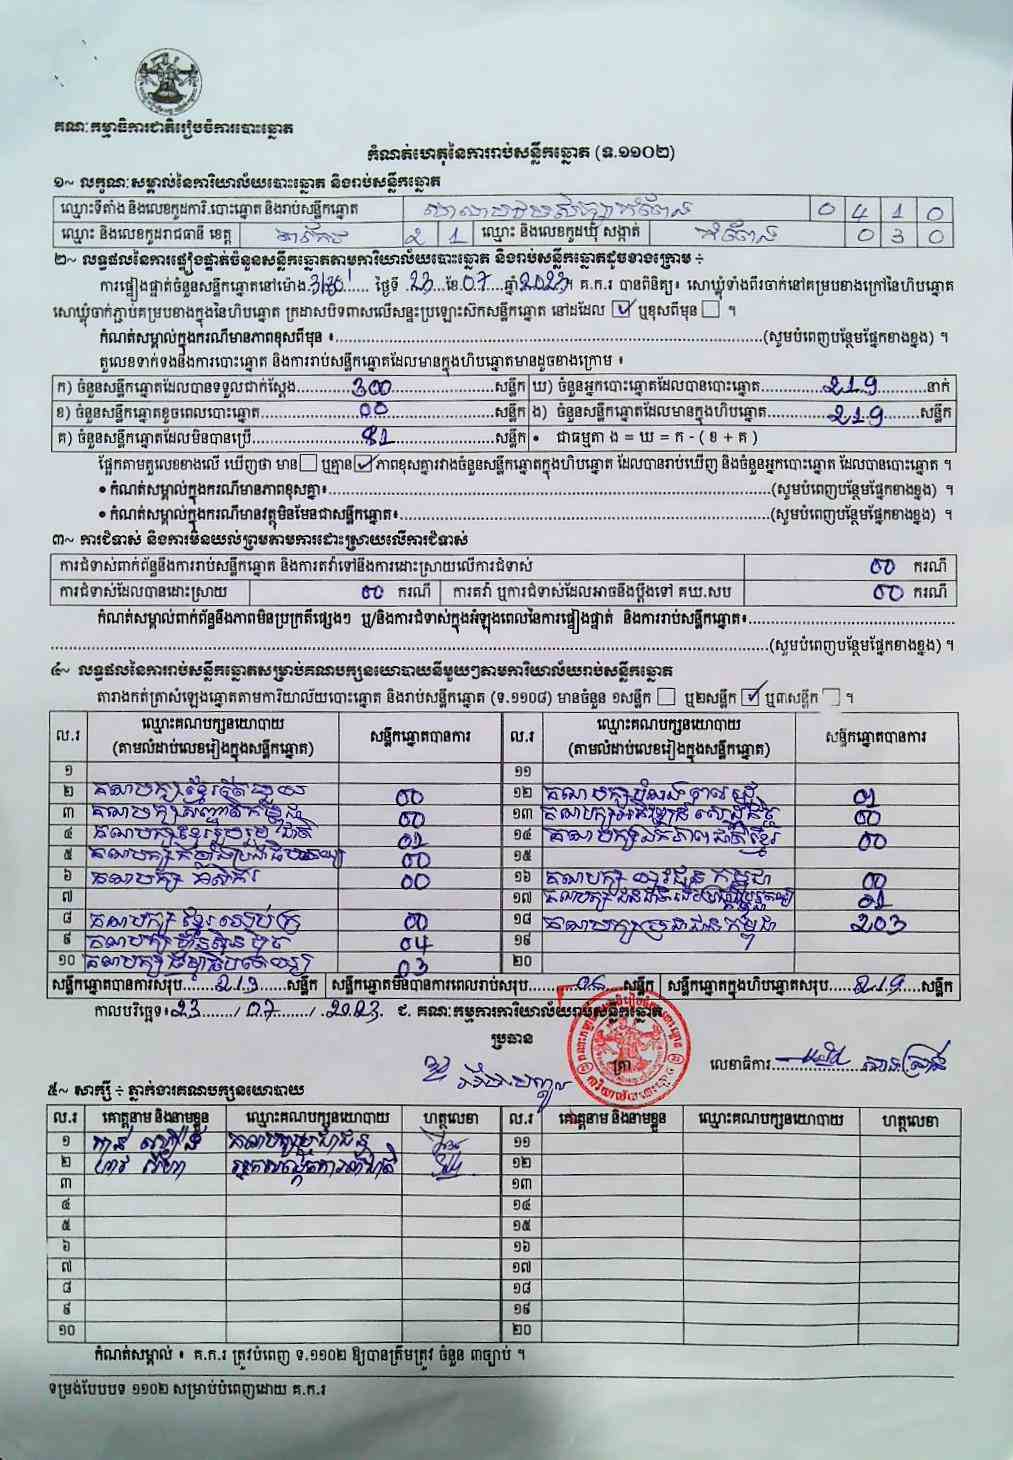 គណៈកម្មាធិការជាតិរៀបចំការបោះឆ្នោត
កំណត់ហេតុនៃការរាប់សន្លឹកឆ្នោត (ទ.១១០២)
១~ លក្ខណៈសម្គាល់នៃការិយាល័យបោះឆ្នោត និងរាប់សន្លឹកឆ្នោត
ឈ្មោះទីតាំង និងលេខកូដការិ.បោះឆ្នោត និងរាប់សន្លឹកឆ្នោត 0 4 1 0
ឈ្មោះ និងលេខកូដរាជធានី ខេត្ត តាកែវ 2 1 ឈ្មោះ និងលេខកូដឃុំ សង្កាត់ កំពែង 0 3 0
២~ លទ្ធផលនៃការផ្ទៀងផ្ទាត់ចំនួនសន្លឹកឆ្នោតតាមការិយាល័យបោះឆ្នោត និងរាប់សន្លឹកឆ្នោតដូចខាងក្រោម ÷
ការផ្ទៀងផ្ទាត់ចំនួនសន្លឹកឆ្នោតនៅម៉ោង ថ្ងៃទី 23 ខែ 07 ឆ្នាំ 2023។ គ.ក.រ បានពិនិត្យ៖ សោឃ្លុំទាំងពីរចាក់នៅគម្របខាងក្រៅនៃហិបឆ្នោត
សោឃ្លុំចាក់ភ្ជាប់គម្របខាងក្នុងនៃហិបឆ្នោត ក្រដាសបិទពាសលើសន្ទះប្រឡោះស៊កសន្លឹកឆ្នោត នៅដដែល ☑ ឬខុសពីមុន ☐ ។
កំណត់សម្គាល់ក្នុងករណីមានភាពខុសពីមុន ៖ (សូមបំពេញបន្ថែមផ្នែកខាងខ្នង) ។
តួលេខទាក់ទងនឹងការបោះឆ្នោត និងការរាប់សន្លឹកឆ្នោតដែលមានក្នុងហិបឆ្នោតមានដូចខាងក្រោម ៖
ក) ចំនួនសន្លឹកឆ្នោតដែលបានទទួលជាក់ស្តែង 300 សន្លឹក ឃ) ចំនួនអ្នកបោះឆ្នោតដែលបានបោះឆ្នោត 219 នាក់
ខ) ចំនួនសន្លឹកឆ្នោតខូចពេលបោះឆ្នោត 00 សន្លឹក ង) ចំនួនសន្លឹកឆ្នោតដែលមានក្នុងហិបឆ្នោត 219 សន្លឹក
គ) ចំនួនសន្លឹកឆ្នោតដែលមិនបានប្រើ 81 សន្លឹក • ជាធម្មតា ង = ឃ = ក - ( ខ + គ )
ផ្អែកតាមតួលេខខាងលើ ឃើញថា មាន ☐ ឬគ្មាន ☑ ភាពខុសគ្នារវាងចំនួនសន្លឹកឆ្នោតក្នុងហិបឆ្នោត ដែលបានរាប់ឃើញ និងចំនួនអ្នកបោះឆ្នោត ដែលបានបោះឆ្នោត ។
• កំណត់សម្គាល់ក្នុងករណីមានភាពខុសគ្នា៖ (សូមបំពេញបន្ថែមផ្នែកខាងខ្នង) ។
• កំណត់សម្គាល់ក្នុងករណីមានវត្ថុមិនមែនជាសន្លឹកឆ្នោត៖ (សូមបំពេញបន្ថែមផ្នែកខាងខ្នង) ។
៣~ ការជំទាស់ និងការមិនយល់ព្រមតាមការដោះស្រាយលើការជំទាស់
ការជំទាស់ពាក់ព័ន្ធនឹងការរាប់សន្លឹកឆ្នោត និងការតវ៉ាទៅនឹងការដោះស្រាយលើការជំទាស់ 00 ករណី
ការជំទាស់ដែលបានដោះស្រាយ 00 ករណី ការតវ៉ា ឬការជំទាស់ដែលអាចនឹងប្តឹងទៅ គឃ.សប 00 ករណី
កំណត់សម្គាល់ពាក់ព័ន្ធនឹងភាពមិនប្រក្រតីផ្សេងៗ ឬ/និងការជំទាស់ក្នុងអំឡុងពេលនៃការផ្ទៀងផ្ទាត់ និងការរាប់សន្លឹកឆ្នោត៖
(សូមបំពេញបន្ថែមផ្នែកខាងខ្នង) ។
៤~ លទ្ធផលនៃការរាប់សន្លឹកឆ្នោតសម្រាប់គណបក្សនយោបាយនីមួយៗតាមការិយាល័យរាប់សន្លឹកឆ្នោត
តារាងកត់ត្រាសំឡេងឆ្នោតតាមការិយាល័យបោះឆ្នោត និងរាប់សន្លឹកឆ្នោត (ទ.១១០៨) មានចំនួន ១សន្លឹក ☐ ឬ២សន្លឹក ☑ ឬ៣សន្លឹក ☐ ។
ល.រ ឈ្មោះគណបក្សនយោបាយ (តាមលំដាប់លេខរៀងក្នុងសន្លឹកឆ្នោត) សន្លឹកឆ្នោតបានការ ល.រ ឈ្មោះគណបក្សនយោបាយ (តាមលំដាប់លេខរៀងក្នុងសន្លឹកឆ្នោត) សន្លឹកឆ្នោតបានការ
១ ១១
២ គណបក្សខ្មែរតែមួយ 00 ១២ គណបក្ស 01
៣ គណបក្សសញ្ជាតិកម្ពុជា 00 ១៣ គណបក្ស 00
៤ គណបក្សខ្មែររួបរួមជាតិ 01 ១៤ គណបក្សឯកភាពជាតិខ្មែរ 00
៥ គណបក្សកម្លាំងប្រជាធិបតេយ្យ 00 ១៥
៦ គណបក្ស កសិករ 00 ១៦ គណបក្ស យុវជន កម្ពុជា 00
៧ ១៧ គណបក្ស 01
៨ គណបក្ស ខ្មែរ 00 ១៨ គណបក្សប្រជាជនកម្ពុជា 203
៩ គណបក្សហ៊្វុនស៊ិនប៉ិច 04 ១៩
១០ គណបក្ស 03 ២០
សន្លឹកឆ្នោតបានការសរុប 213 សន្លឹក សន្លឹកឆ្នោតមិនបានការពេលរាប់សរុប 06 សន្លឹក សន្លឹកឆ្នោតក្នុងហិបឆ្នោតសរុប 219 សន្លឹក
កាលបរិច្ឆេទ៖ 23 / 07 / 2023 ជ. គណៈកម្មការការិយាល័យរាប់សន្លឹកឆ្នោត
ប្រធាន
ត្រា
លេខាធិការ
៥~ សាក្សី ÷ ភ្នាក់ងារគណបក្សនយោបាយ
ល.រ គោត្តនាម និងនាមខ្លួន ឈ្មោះគណបក្សនយោបាយ ហត្ថលេខា ល.រ គោត្តនាម និងនាមខ្លួន ឈ្មោះគណបក្សនយោបាយ ហត្ថលេខា
១ គណបក្សប្រជាជន ១១
២ ១២
៣ ១៣
៤ ១៤
៥ ១៥
៦ ១៦
៧ ១៧
៨ ១៨
៩ ១៩
១០ ២០
កំណត់សម្គាល់ ៖ គ.ក.រ ត្រូវបំពេញ ទ.១១០២ ឱ្យបានត្រឹមត្រូវ ចំនួន ៣ច្បាប់ ។
ទម្រង់បែបបទ ១១០២ សម្រាប់បំពេញដោយ គ.ក.រ